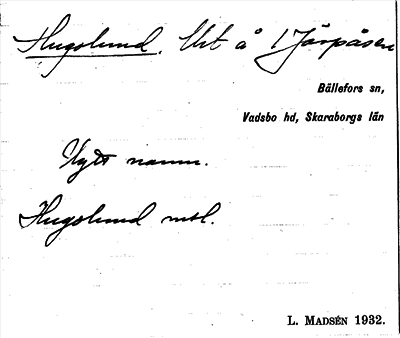 Hugslund. Utt å 1 Järpåsen
Bällefors sn,
Vadsbo hd, Skaraborgs län
Nytt namn.
Hugslund msl.
L. MADSÉN 1932.